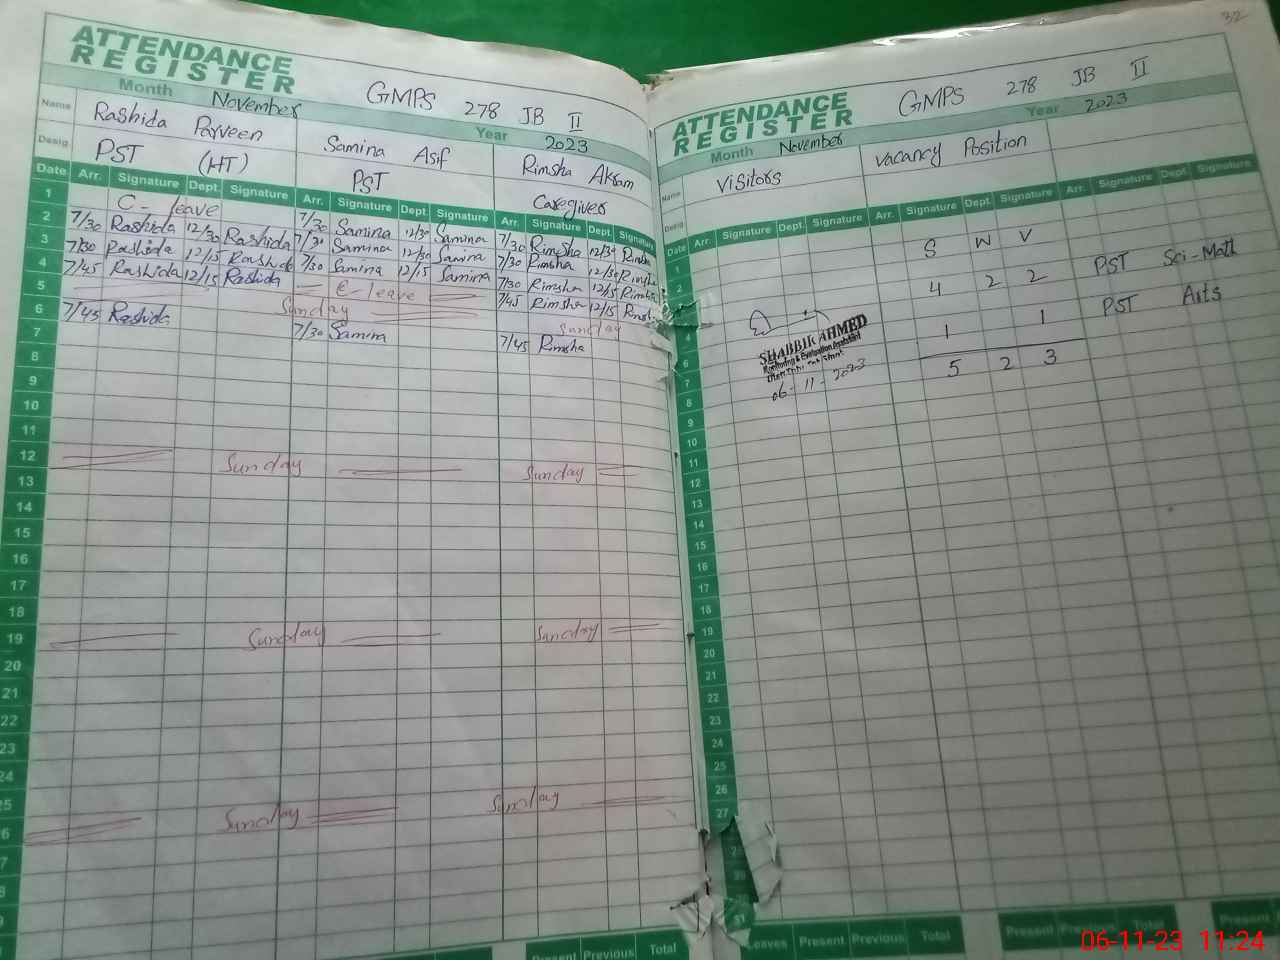 32
ATTENDANCE
REGISTER
Month November GMPS 278 JB II
Year 2023
Name Rashida Parveen Samina Asif Rimsha Akram
Desig. PST (HT) PST Caregiver
Date Arr. Signature Dept. Signature Arr. Signature Dept. Signature Arr. Signature Dept. Signature
1 C- leave 7/30 Samina 12/30 Samina 7/30 Rimsha 12/30 Rimsha
2 7/30 Rashida 12/30 Rashida 7/30 Samina 12/30 Samina 7/30 Rimsha 12/30 Rimsha
3 7/30 Rashida 12/15 Rashida 7/30 Samina 12/15 Samina 7/30 Rimsha 12/15 Rimsha
4 7/45 Rashida 12/15 Rashida C- leave 7/45 Rimsha 12/15
5 Sunday Sunday
6 7/45 Rashida 7/30 Samina 7/45 Rimsha
7
8
9
10
11
12 Sunday Sunday
13
14
15
16
17
18
19 Sunday Sunday
20
21
22
23
24
Sunday Sunday
Present Previous Total
ATTENDANCE
REGISTER
Month November GMPS 278 JB II
Year 2023
Name Visitors Vacancy Position
Desig.
Date Arr. Signature Dept. Signature Arr. Signature Dept. Signature Arr. Signature Dept. Signature
1 S W V
2 4 2 2 PST Sci-Math
4 1 1 PST Arts
6 5 2 3
SHABBIR AHMED
Monitoring & Evaluation Assistant
06-11-2023
7
8
9
10
11
12
13
14
15
16
17
18
19
20
21
22
23
24
25
26
27
31
Leaves Present Previous Total Present Total Present
06-11-23 11:24